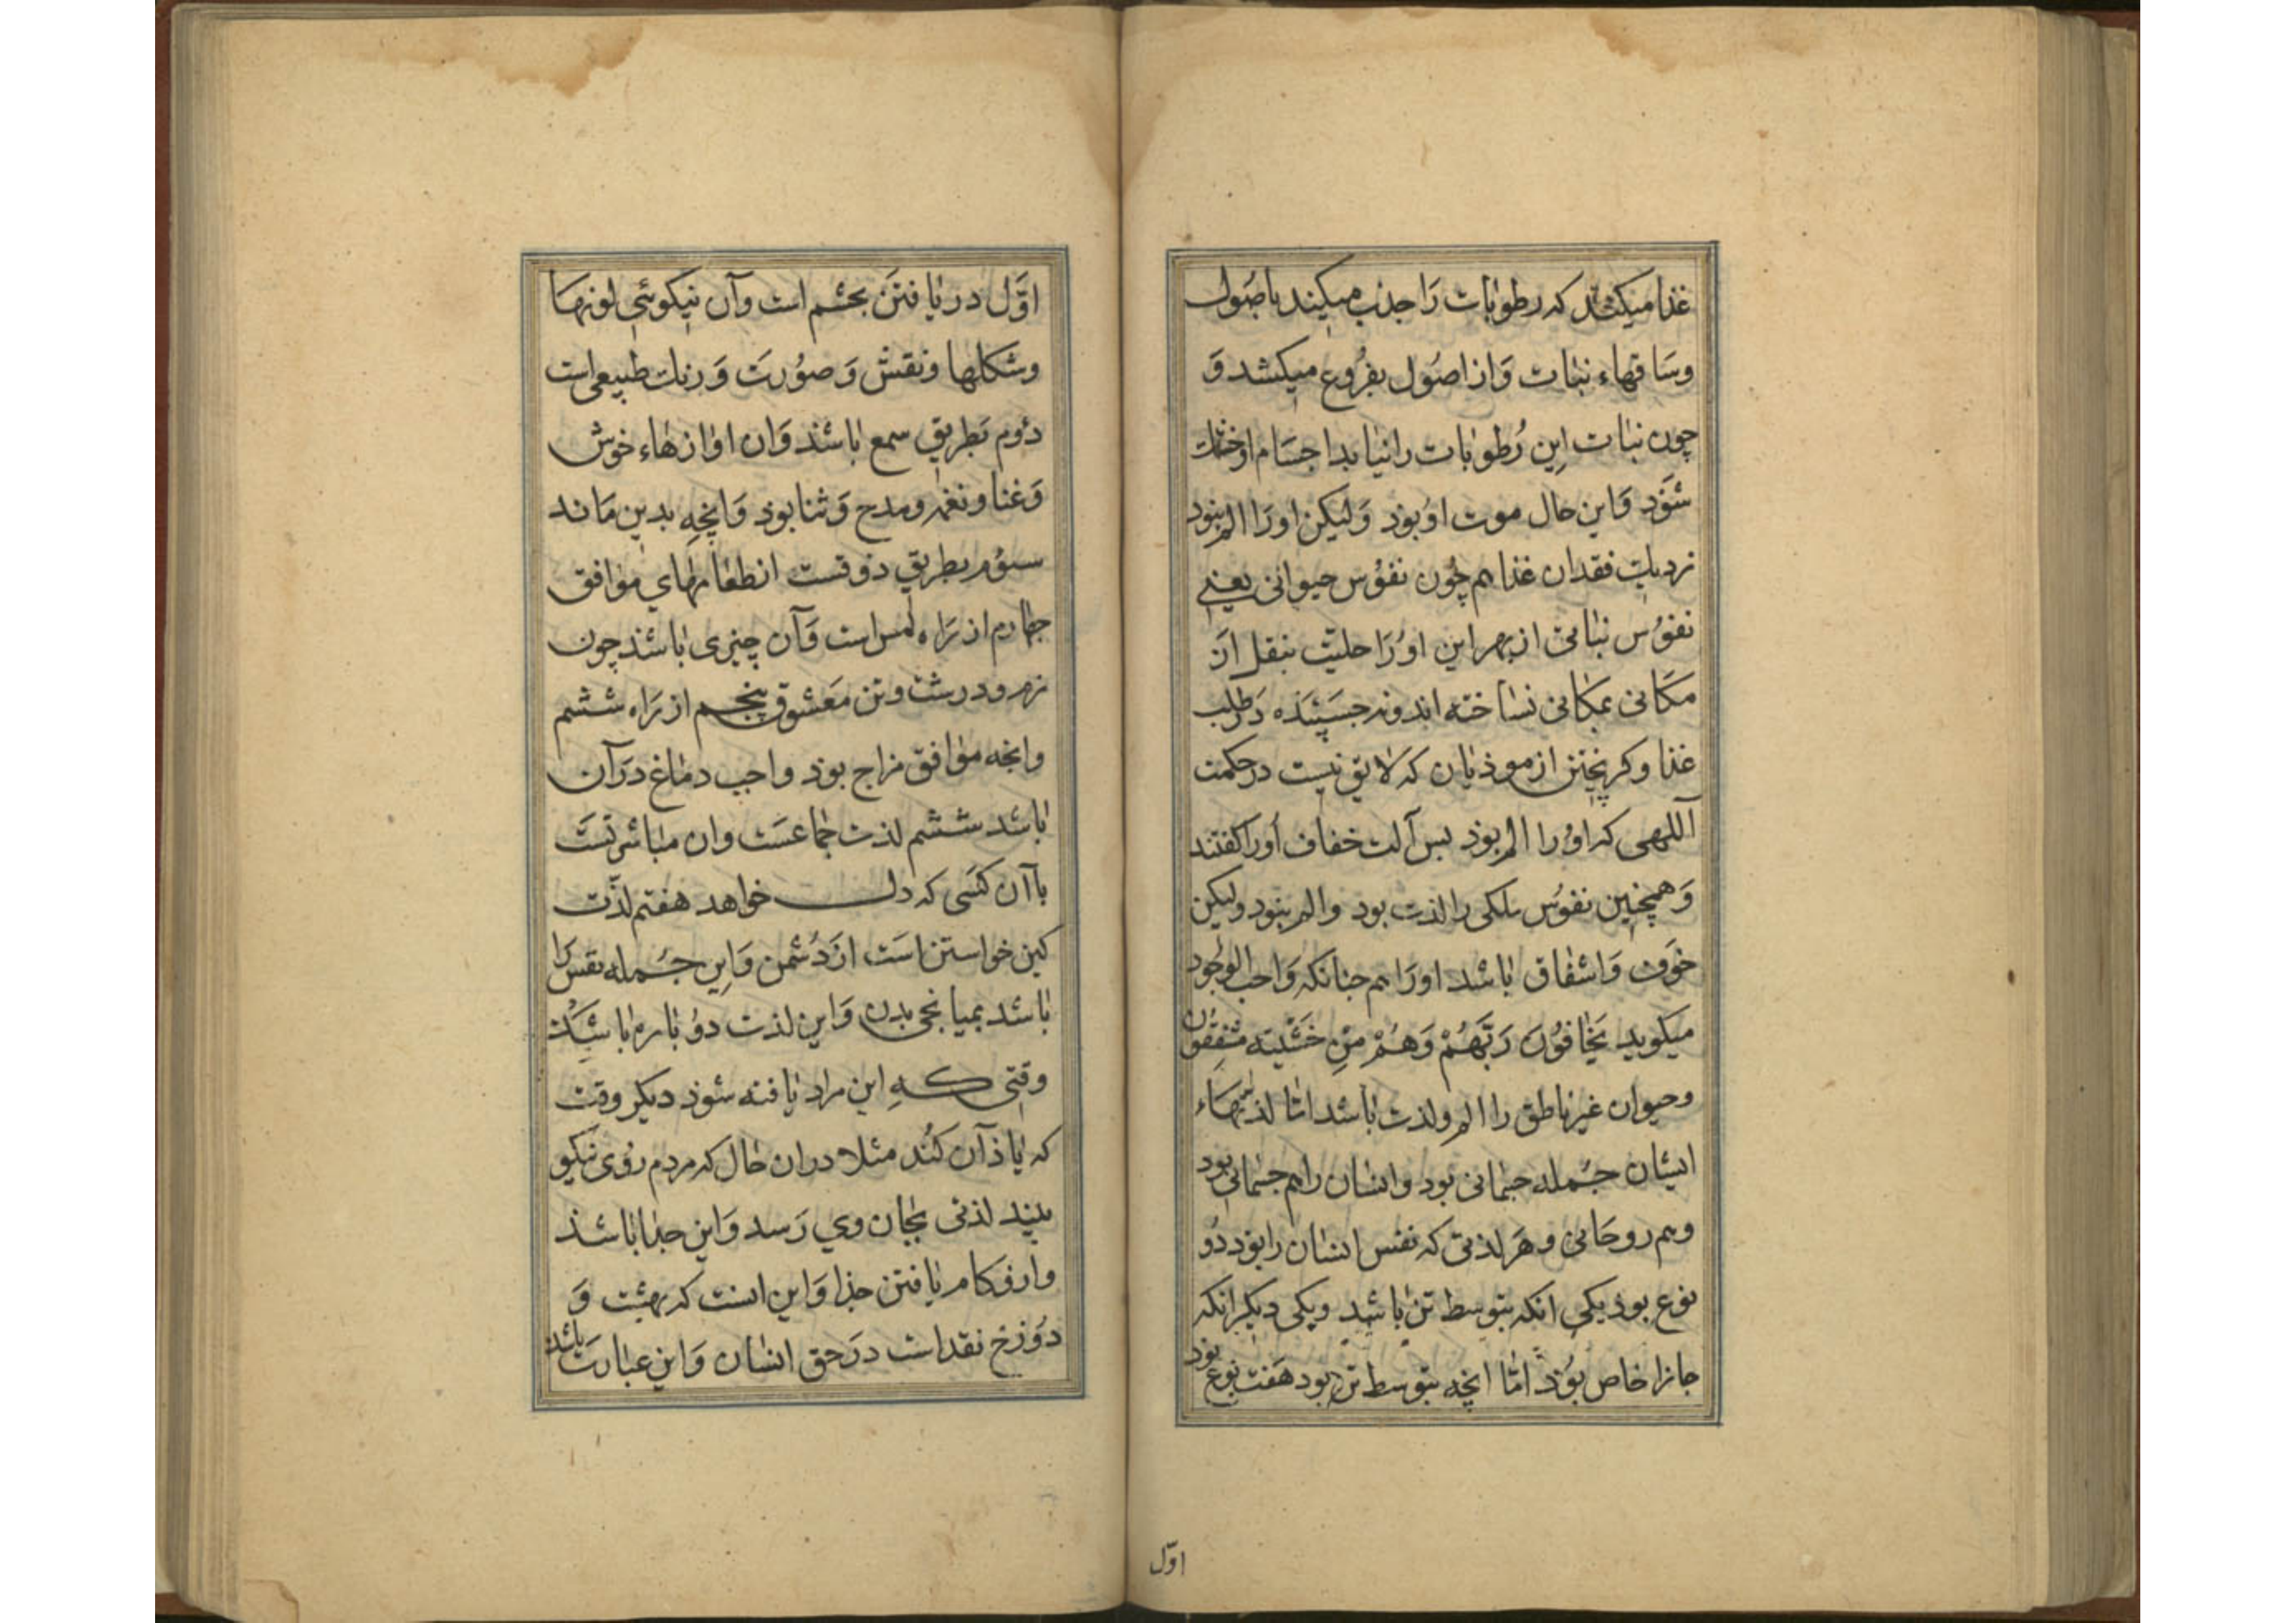 غذا میکشد که رطوبات رَا جذب میکند باصُول
وسَاقهاء نبات وَاز اصُول بفرُوع میکشد وَ
چون نبات اینِ رُطوبات را نیابد اجسَام او خشک
شوَد وَاین حال موت اوُ بوَذ وَلیکن اورَا الم نبود
نزدیک فقدان غذا هم چُون نفوُس حیوانی یعنی
نفوُس نباتی از بهر این اوُرَا حلیت بنقل اَز
مکَانی بمکانی نساخته اند ونه جسَپیَذه دَر طلب
غذا وکریختن از موذیان که لایق نیست در حکمت
آللهی که اوُرا الم بوَذ بس آلت خفاف اَورا کفتند
وَهمچنین نفوُس ملکی را لذت بود والم نبود ولیکن
خوَف وَاشفاق باشد اورَا هم جنانکه وَاجب الوجُود
میکوید یَخَافُونَ رَبَّهُمْ وَهُمْ مِنْ خَشْیَتِه مُشفِقُون
وحیوان غیر ناطق را الم ولذت باشد امّا لذتهاء
ایشان جُمله جسمانی بود وانسان را هم جسمانی بود
وهم روحَانی وهَر لذتی که نفس انسان را بوَد دُو
نوع بوذ یکی انکه بتوسط تن باشد ویکی دیکر انکه
جانرا خاص بوَذ امّا انچه بتوسط تن بود هَفت نوع بوَد
اوّل
اوَّل در یافتَن بجشم است وآن نیکوئی لونهَا
وشکلها ونقش وَصوُرتَ وَرنک طبیعی است
دوُم بَطریق سمع باشَد وَان اوازهاء خوش
وَغنا ونغمه ومدح وَثنا بوَذ وَانچهِ بدین مَاند
سوُم بطریق ذوقست از طعامهای موافق
جهارم از رَاه لمس است وَآن چیزی باشَد چون
نرم ودرشت وتن مَعشوق پنجم از رَاه ششم
وانجه موافق مزاج بوَذ واجب دماغ دَر آن
باشد ششم لذت جماعسَت وان مباشرتسَت
باآن کسَی که دل خواهد هفتم لذّت
کین خواستن اسَت از دُشمن وَاین جُمله نفس را
باشد بمیانجی بدن وَاین لذت دوُ باره باشَد
وقتی کهِ این مراد یافته شوَذ دیکر وقت
که یاذ آن کُند مثلا دران حال که مردم روُی نیکو
بیند لذتی بجان وی رَسد وَاین جدا باشَد
وارزو کام یافتن جذا وَاین انست که بهشت وَ
دوُزخ نقد است دَر حق انسان وَاین عبارت باشد